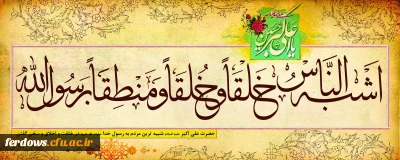 یا علی اکبر
أشبه النّاس خَلقاً و خُلقاً و مَنطقاً برسول الله
حضرت علی اکبر شبیه ترین مردم به رسول خدا
ferdows.cfu.ac.ir